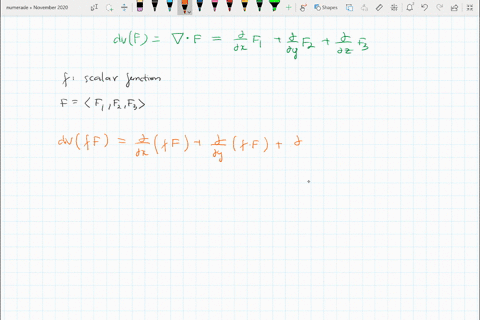 numerade » November 2020
Shapes
div(F) = ∇·F = ∂/∂x F₁ + ∂/∂y F₂ + ∂/∂z F₃
f: scalar function
F = ⟨F₁, F₂, F₃⟩
div(fF) = ∂/∂x (fF) + ∂/∂y (f·F) + ∂